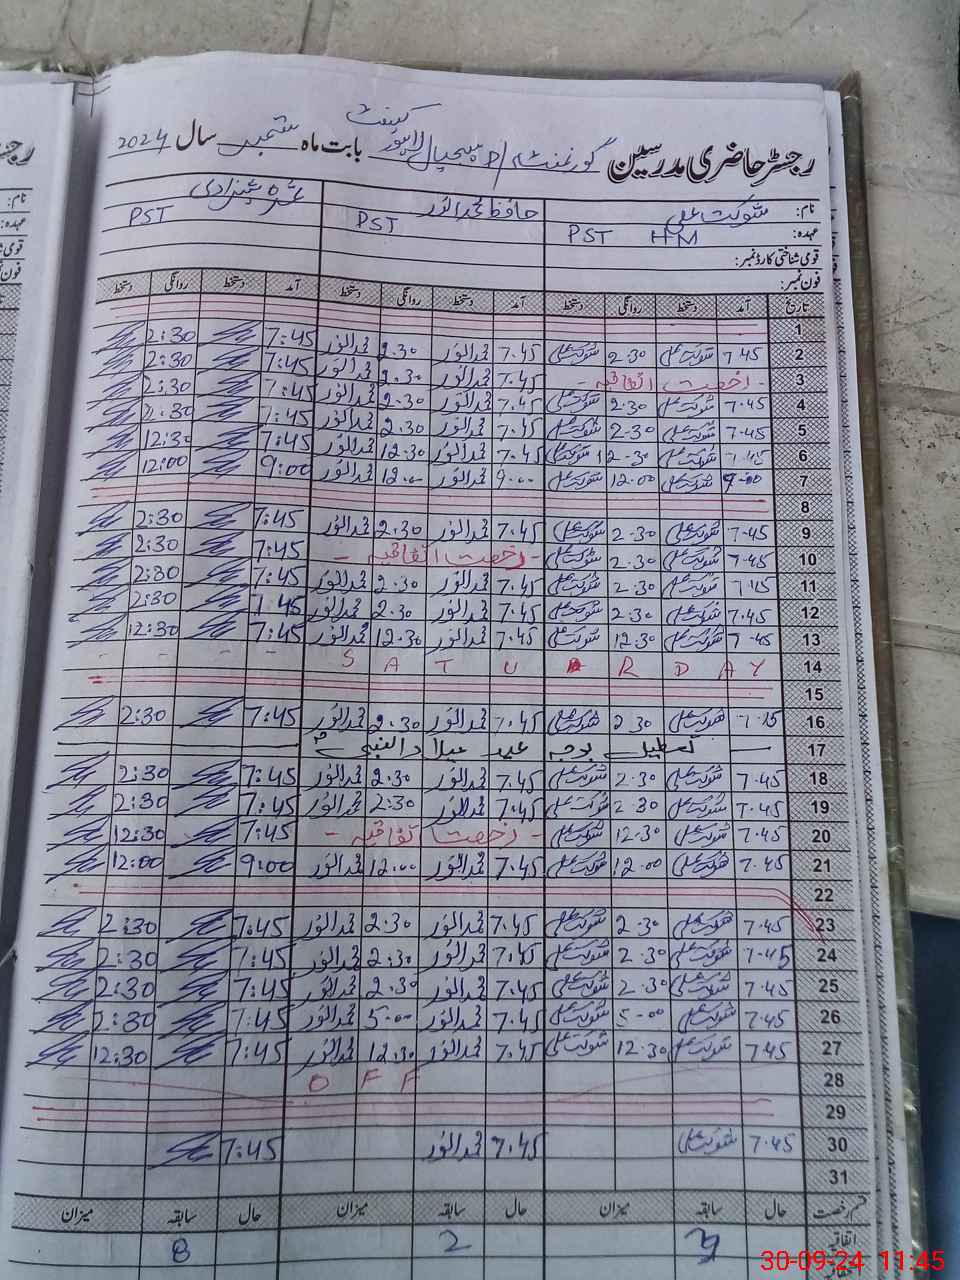 رجسٹر حاضری مدرسین گورنمنٹ بابت ماہ ستمبر سال 2024
کینٹ
نام: شوکت علی حافظ محمد انور
عہدہ: PST HM PST PST
قومی شناختی کارڈ نمبر:
فون نمبر:
تاریخ آمد دستخط روانگی دستخط آمد دستخط روانگی دستخط آمد دستخط روانگی دستخط
1
2 7.45 شوکت علی 2.30 شوکت علی 7.45 محمد انور 2.30 محمد انور 7:45 2:30
3 - رخصت اتفاقیہ - 7.45 محمد انور 2.30 محمد انور 7:45 2:30
4 7.45 شوکت علی 2.30 شوکت علی 7.45 محمد انور 2.30 محمد انور 7:45 2:30
5 7.45 شوکت علی 2.30 شوکت علی 7.45 محمد انور 2.30 محمد انور 7:45 2:30
6 7.45 شوکت علی 12.30 شوکت علی 7.45 محمد انور 12.30 محمد انور 7:45 12:30
7 9.00 شوکت علی 12.00 شوکت علی 9.00 محمد انور 12.00 محمد انور 9:00 12:00
8
9 7.45 شوکت علی 2.30 شوکت علی 7.45 محمد انور 2.30 محمد انور 7:45 2:30
10 7.45 شوکت علی 2.30 شوکت علی - رخصت اتفاقیہ - 7:45 2:30
11 7.45 شوکت علی 2.30 شوکت علی 7.45 محمد انور 2.30 محمد انور 7:45 2:30
12 7.45 شوکت علی 2.30 شوکت علی 7.45 محمد انور 2.30 محمد انور 7:45 2:30
13 7.45 شوکت علی 12.30 شوکت علی 7.45 محمد انور 12.30 محمد انور 7:45 12:30
14 SATURDAY
15
16 شوکت علی 2.30 شوکت علی 7.45 محمد انور 2.30 محمد انور 7:45 2:30
17 تعطیل بوجہ عید میلاد النبیؐ
18 7.45 شوکت علی 2.30 شوکت علی 7.45 محمد انور 2.30 محمد انور 7:45 2:30
19 7.45 شوکت علی 2.30 شوکت علی 7.45 محمد انور 2:30 محمد انور 7:45 2:30
20 7.45 شوکت علی 12.30 شوکت علی - رخصت اتفاقیہ - 7:45 12:30
21 7.45 شوکت علی 12.00 شوکت علی 7.45 محمد انور 12.00 محمد انور 9:00 12:00
22
23 7.45 شوکت علی 2.30 شوکت علی 7.45 محمد انور 2.30 محمد انور 7:45 2:30
24 7.45 شوکت علی 2.30 شوکت علی 7.45 محمد انور 2.30 محمد انور 7:45 2:30
25 7.45 شوکت علی 2.30 شوکت علی 7.45 محمد انور 2.30 محمد انور 7:45 2:30
26 7.45 شوکت علی 5.00 شوکت علی 7.45 محمد انور 5.00 محمد انور 7:45 2:30
27 7.45 شوکت علی 12.30 شوکت علی 7.45 محمد انور 12.30 محمد انور 7:45 12:30
28 OFF
29
30 7.45 شوکت علی 7.45 محمد انور 7:45
31
قسم رخصت حال سابقہ میزان حال سابقہ میزان حال سابقہ میزان
اتفاقیہ 2 8
30-09-24 11:45